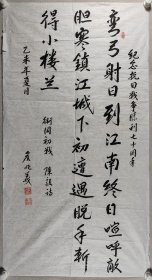 纪念抗日战争胜利七十周年
弯弓射日到江南终日喧呼敌
胆寒镇江城下初遭遇脱手斩
得小楼兰
卫岗初战 陈毅诗
乙未年夏月